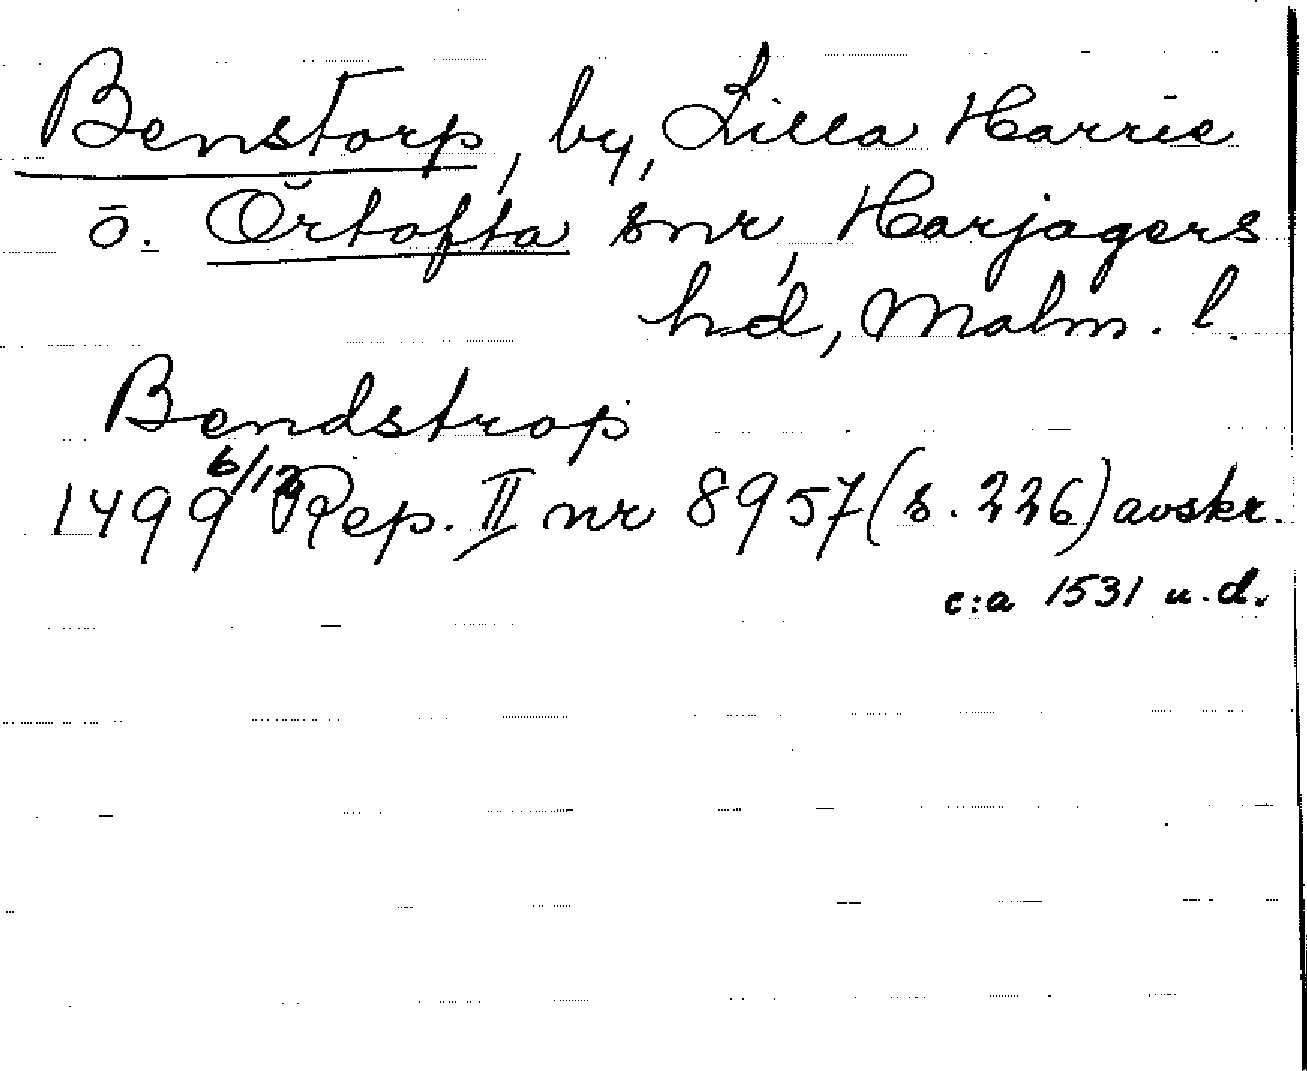 Benstorp, by, Lilla Harrie
o. Örtofta snr, Harjagers
hd, Malm. l.
Bendstrop
1499 6/12 Rep. II nr 8957 (s. 226) avskr.
c:a 1531 u.d.